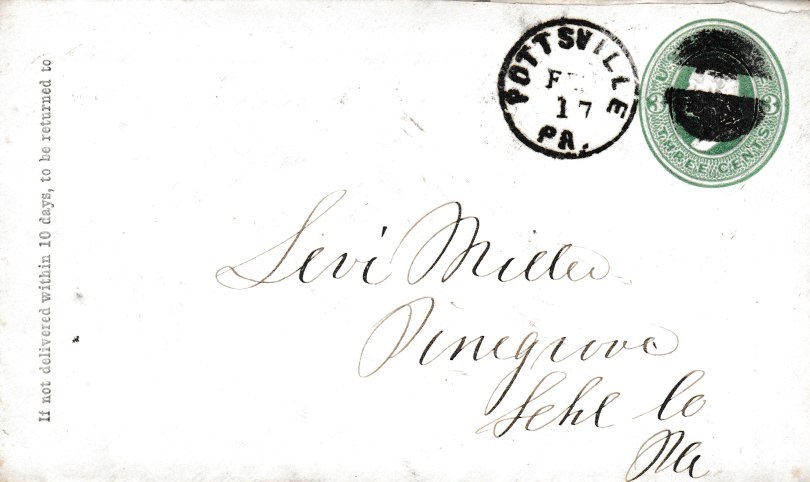 If not delivered within 10 days, to be returned to
POTTSVILLE
17
PA.
U.S.
3 3
THREE CENTS
Levi Miller
Pinegrove
Schl Co
Pa